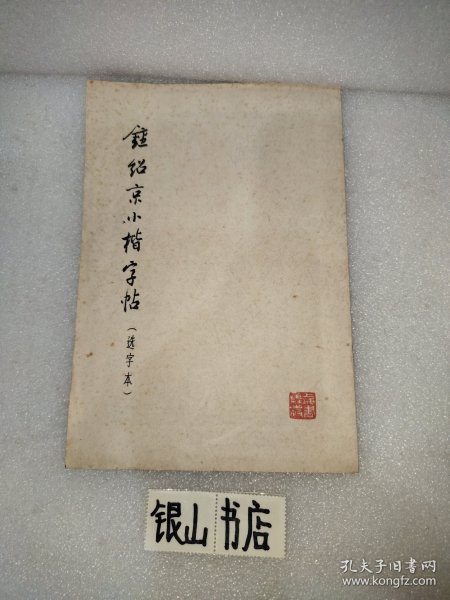 鍾绍京小楷字帖
（选字本）
银山书店
孔夫子旧书网
www.kongfz.com